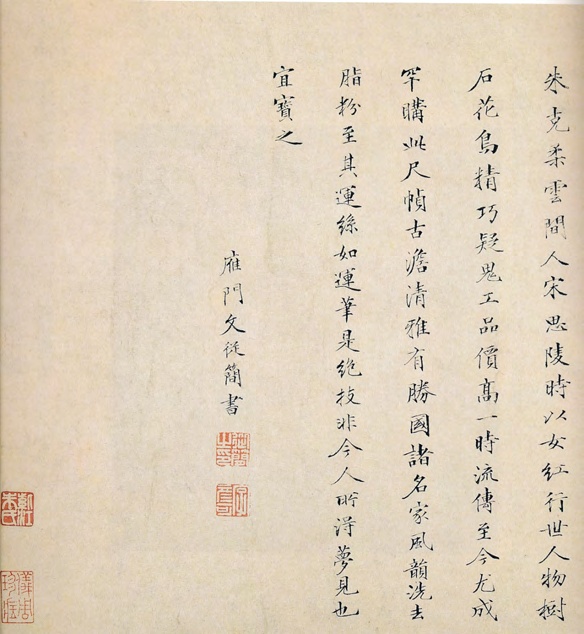 朱克柔雲間人宋思陵時以女紅行世人物樹
石花鳥精巧疑鬼工品價髙一時流傳至今尤成
罕購此尺幀古澹清雅有勝國諸名家風韻洗去
脂粉至其運絲如運筆是絶技非今人所得夢見也
宜寶之
雁門文從簡書